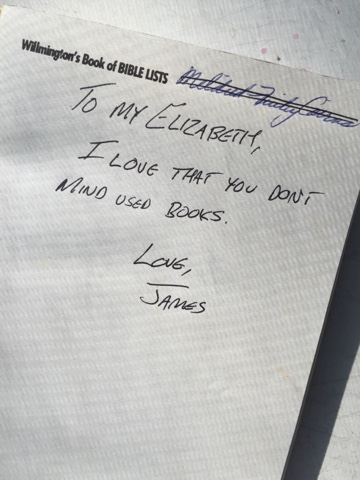 Willmington's Book of BIBLE LISTS
TO MY ELIZABETH,
I LOVE THAT YOU DON'T
MIND USED BOOKS.
LOVE,
JAMES